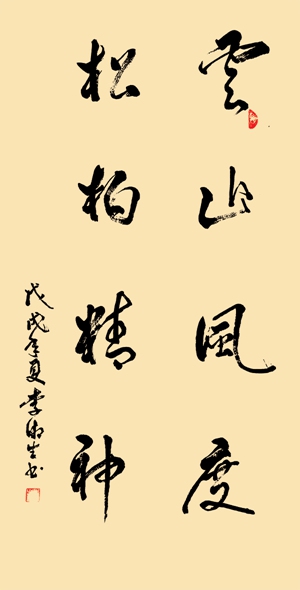 雲山風度
松柏精神
戊戌年夏李渊生书